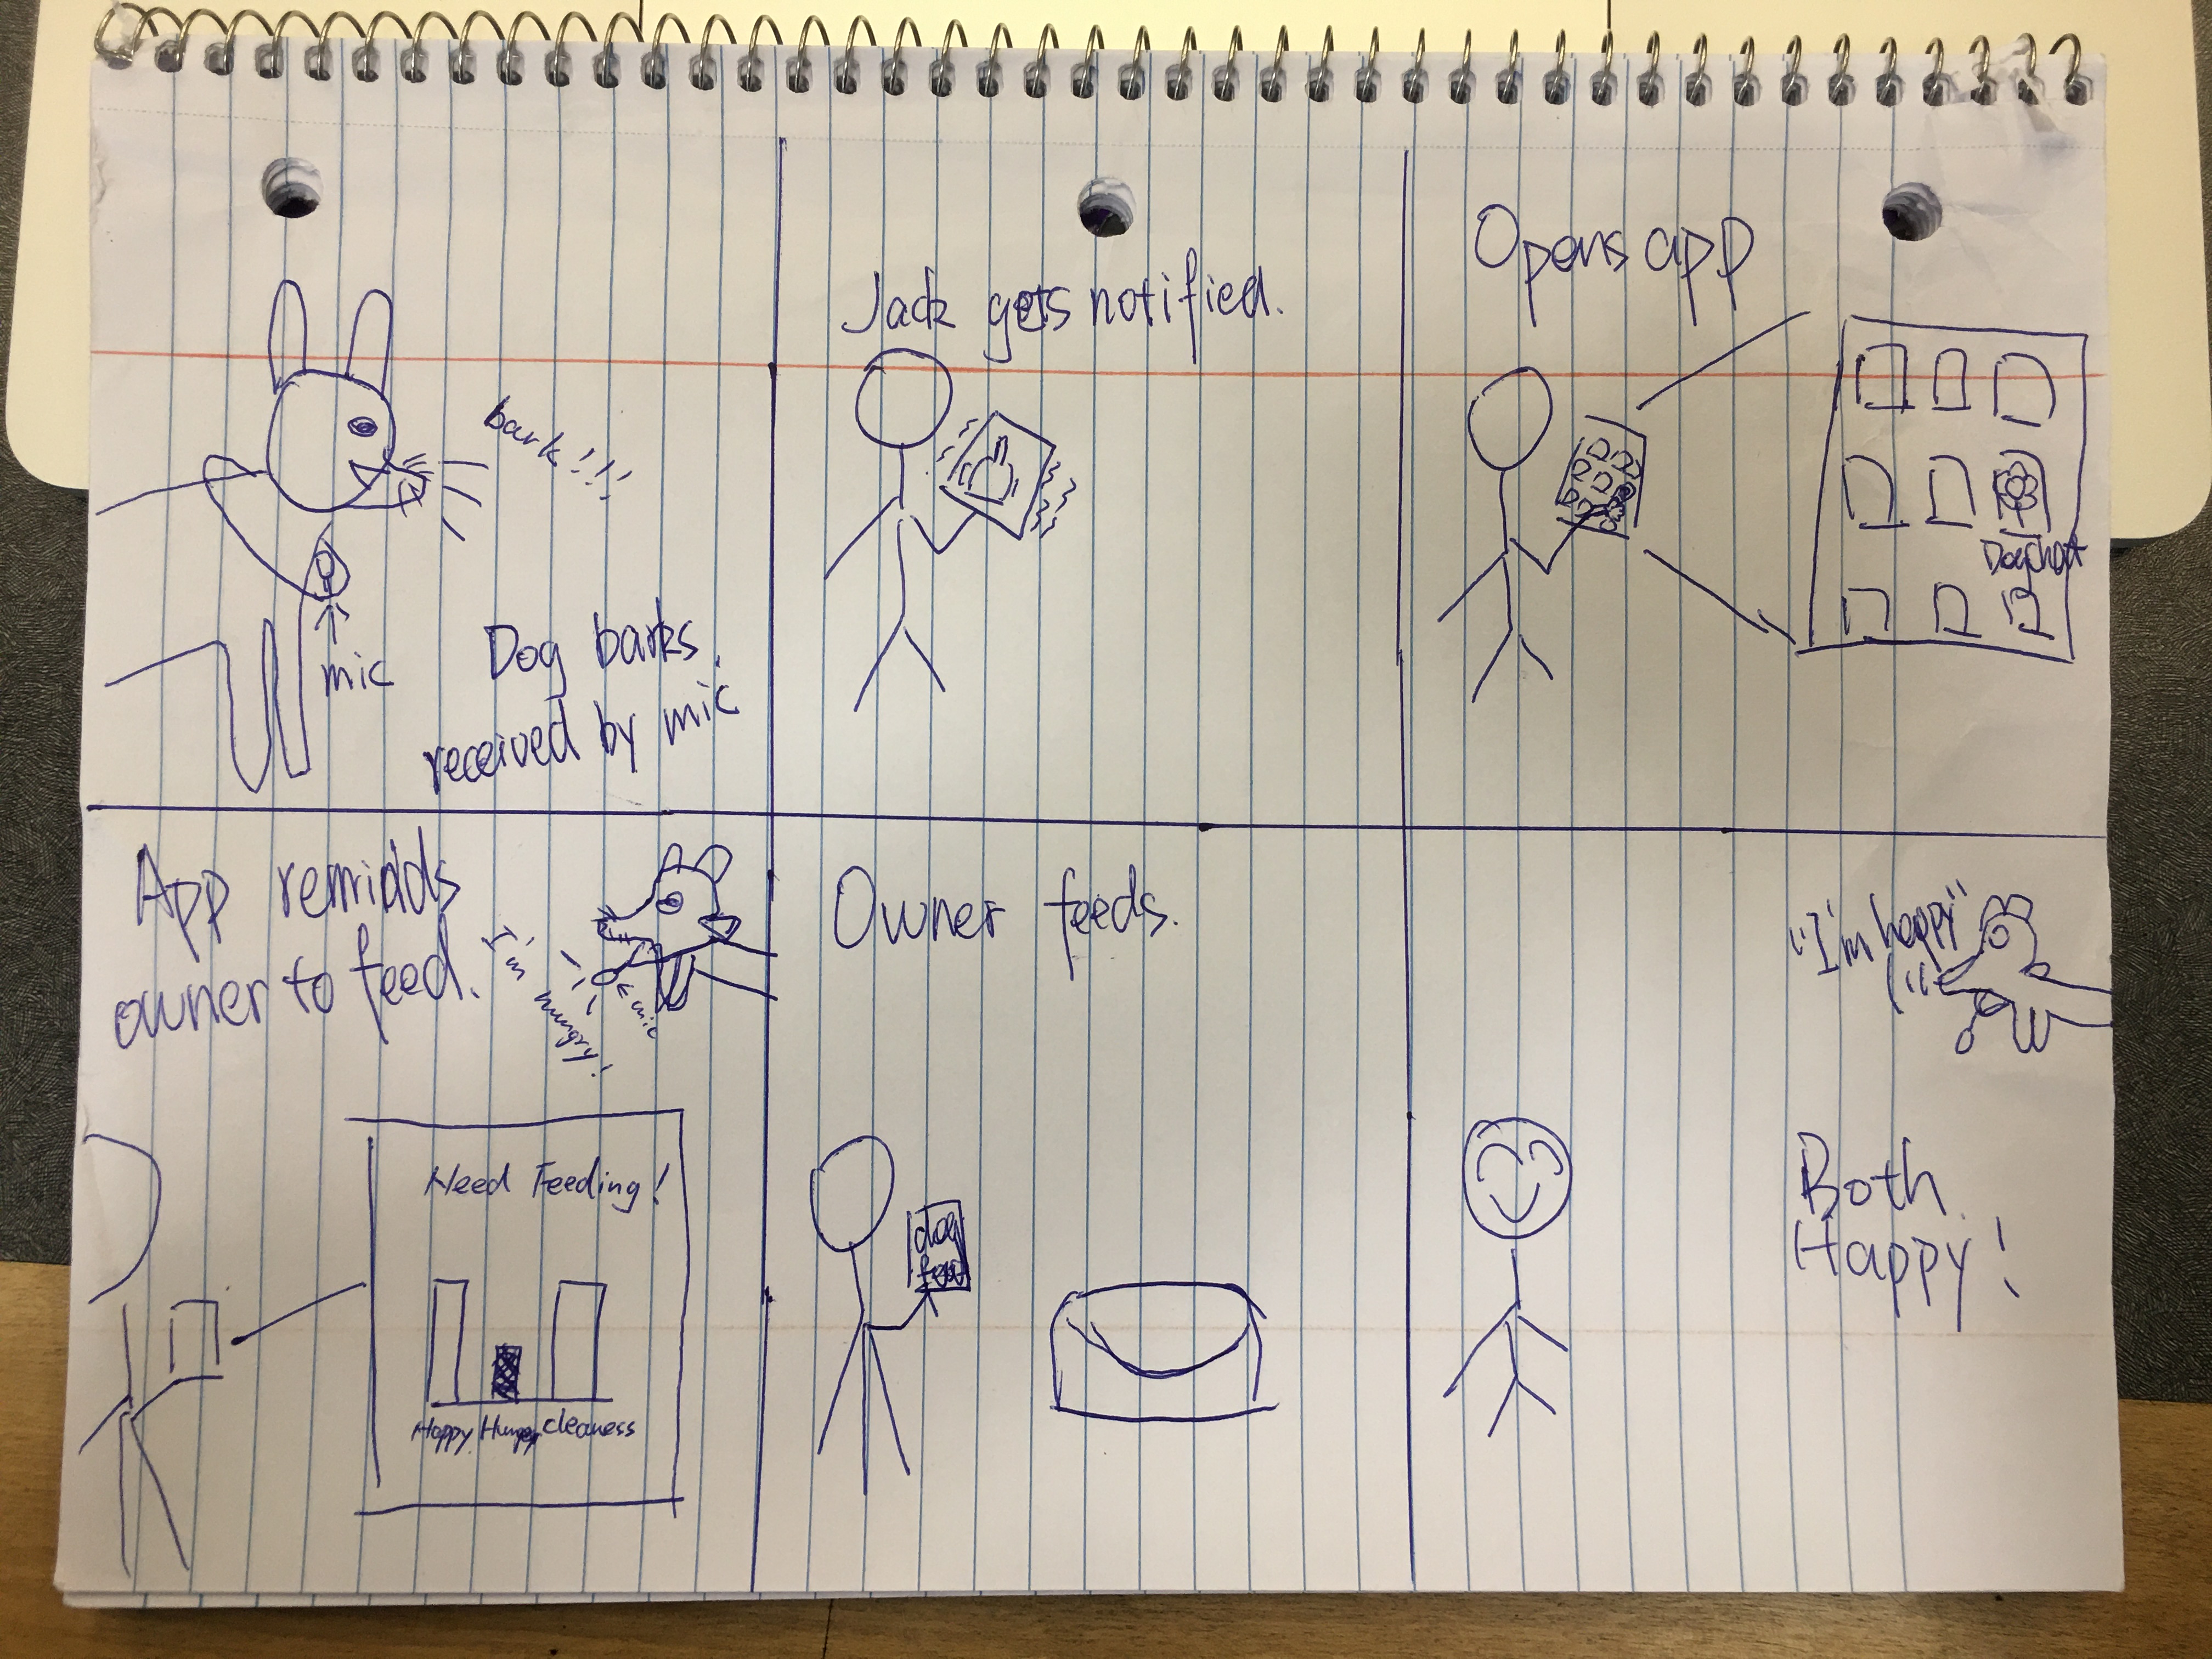 bark!!!
mic
Dog barks.
received by mic
Jack gets notified.
Opens app
DogChat
App remidds
owner to feed.
I'm hungry!
mic
Need Feeding!
Happy Hungry cleaness
Owner feeds.
dog
"I'm happy"
Both
Happy!